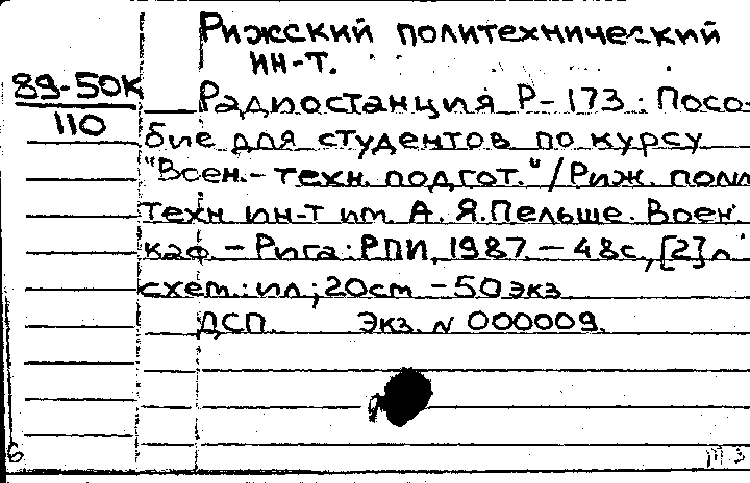 Рижский политехнический
ин-т.
89-50К
110
Радиостанция Р-173: Посо-
бие для студентов по курсу
"Воен.-техн. подгот."/Риж. поли
техн. ин-т им. А. Я. Пельше. Воен.
каф. - Рига: РПИ, 1987. - 48с., [2] л.
схем.: ил; 20см - 50 экз
ДСП. Экз. N 000009.
6